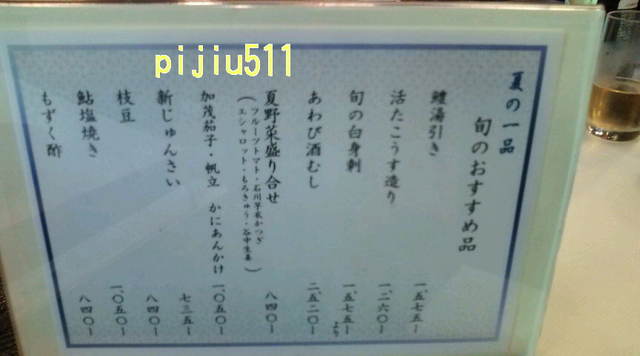 pijiu511
夏の一品
旬のおすすめ品
鱧湯引き 一、五七五〜
活たこうす造り 一、二六〇〜
旬の白身刺 一、五七五〜より
あわび酒むし 二、五二〇〜
夏野菜盛り合せ 八四〇〜
(フルーツトマト・石川芋衣かつぎ
エシャロット・もろきゅう・谷中生姜)
加茂茄子・帆立 かにあんかけ 一、〇五〇〜
新じゅんさい 七三五〜
枝豆 八四〇〜
鮎塩焼き 一、〇五〇〜
もずく酢 八四〇〜